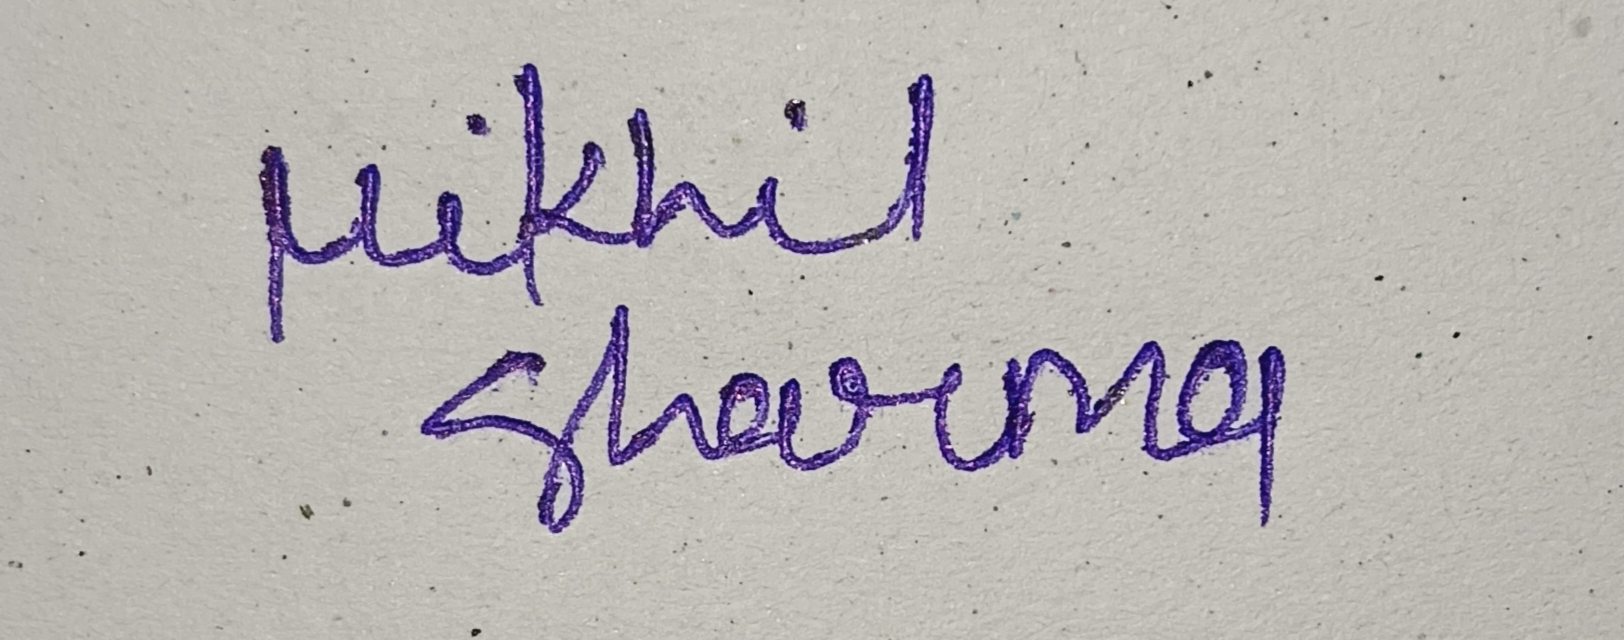 Nikhil
Sharma